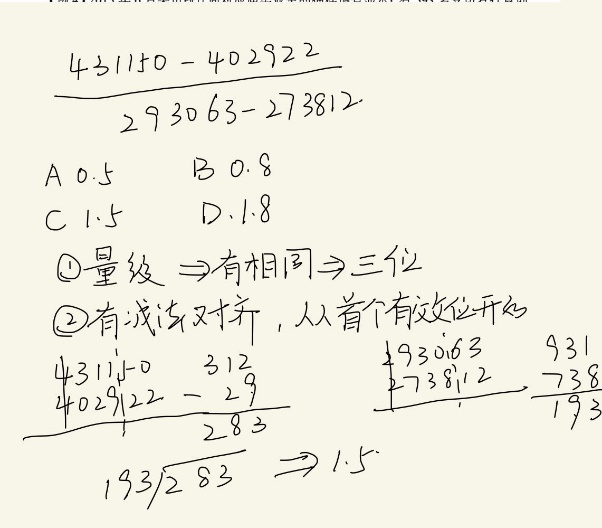 431150 - 402922
293063 - 273812
A 0.5 B 0.8
C 1.5 D.1.8
①量级 ⇒有相同⇒三位
②有减法对齐，从首个有效位开始
431150 312 293063 931
402922 - 29 273812 738
283 193
193/283 ⇒ 1.5